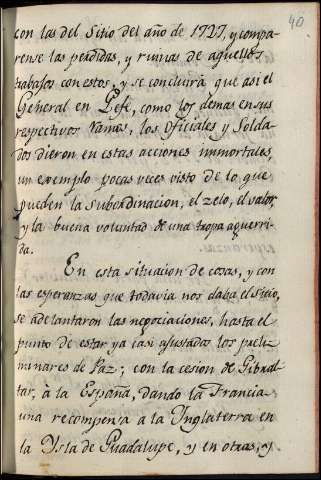 40
con las del Sitio del año de 1727, y compa-
rense las pérdidas, y ruinas de aquellos
trabajos con estos, y se concluirá que asi el
General en Gefe, como los demas en sus
respectivos ramos, los Oficiales y Solda-
dos dieron en estas acciones inmortales,
un exemplo pocas veces visto de lo que
pueden la Subordinacion, el zelo, el valor,
y la buena voluntad de una tropa aguerri-
da.
En esta situacion de cosas, y con
las esperanzas que todavia nos daba el sitio,
se adelantaron las negociaciones, hasta el
punto de estar ya casi ajustados los preli-
minares de Paz; con la cesion de Gibral-
tar, à la España, dando la Francia
una recompensa a la Ynglaterra en
la Ysla de Guadalupe, y en otras, y